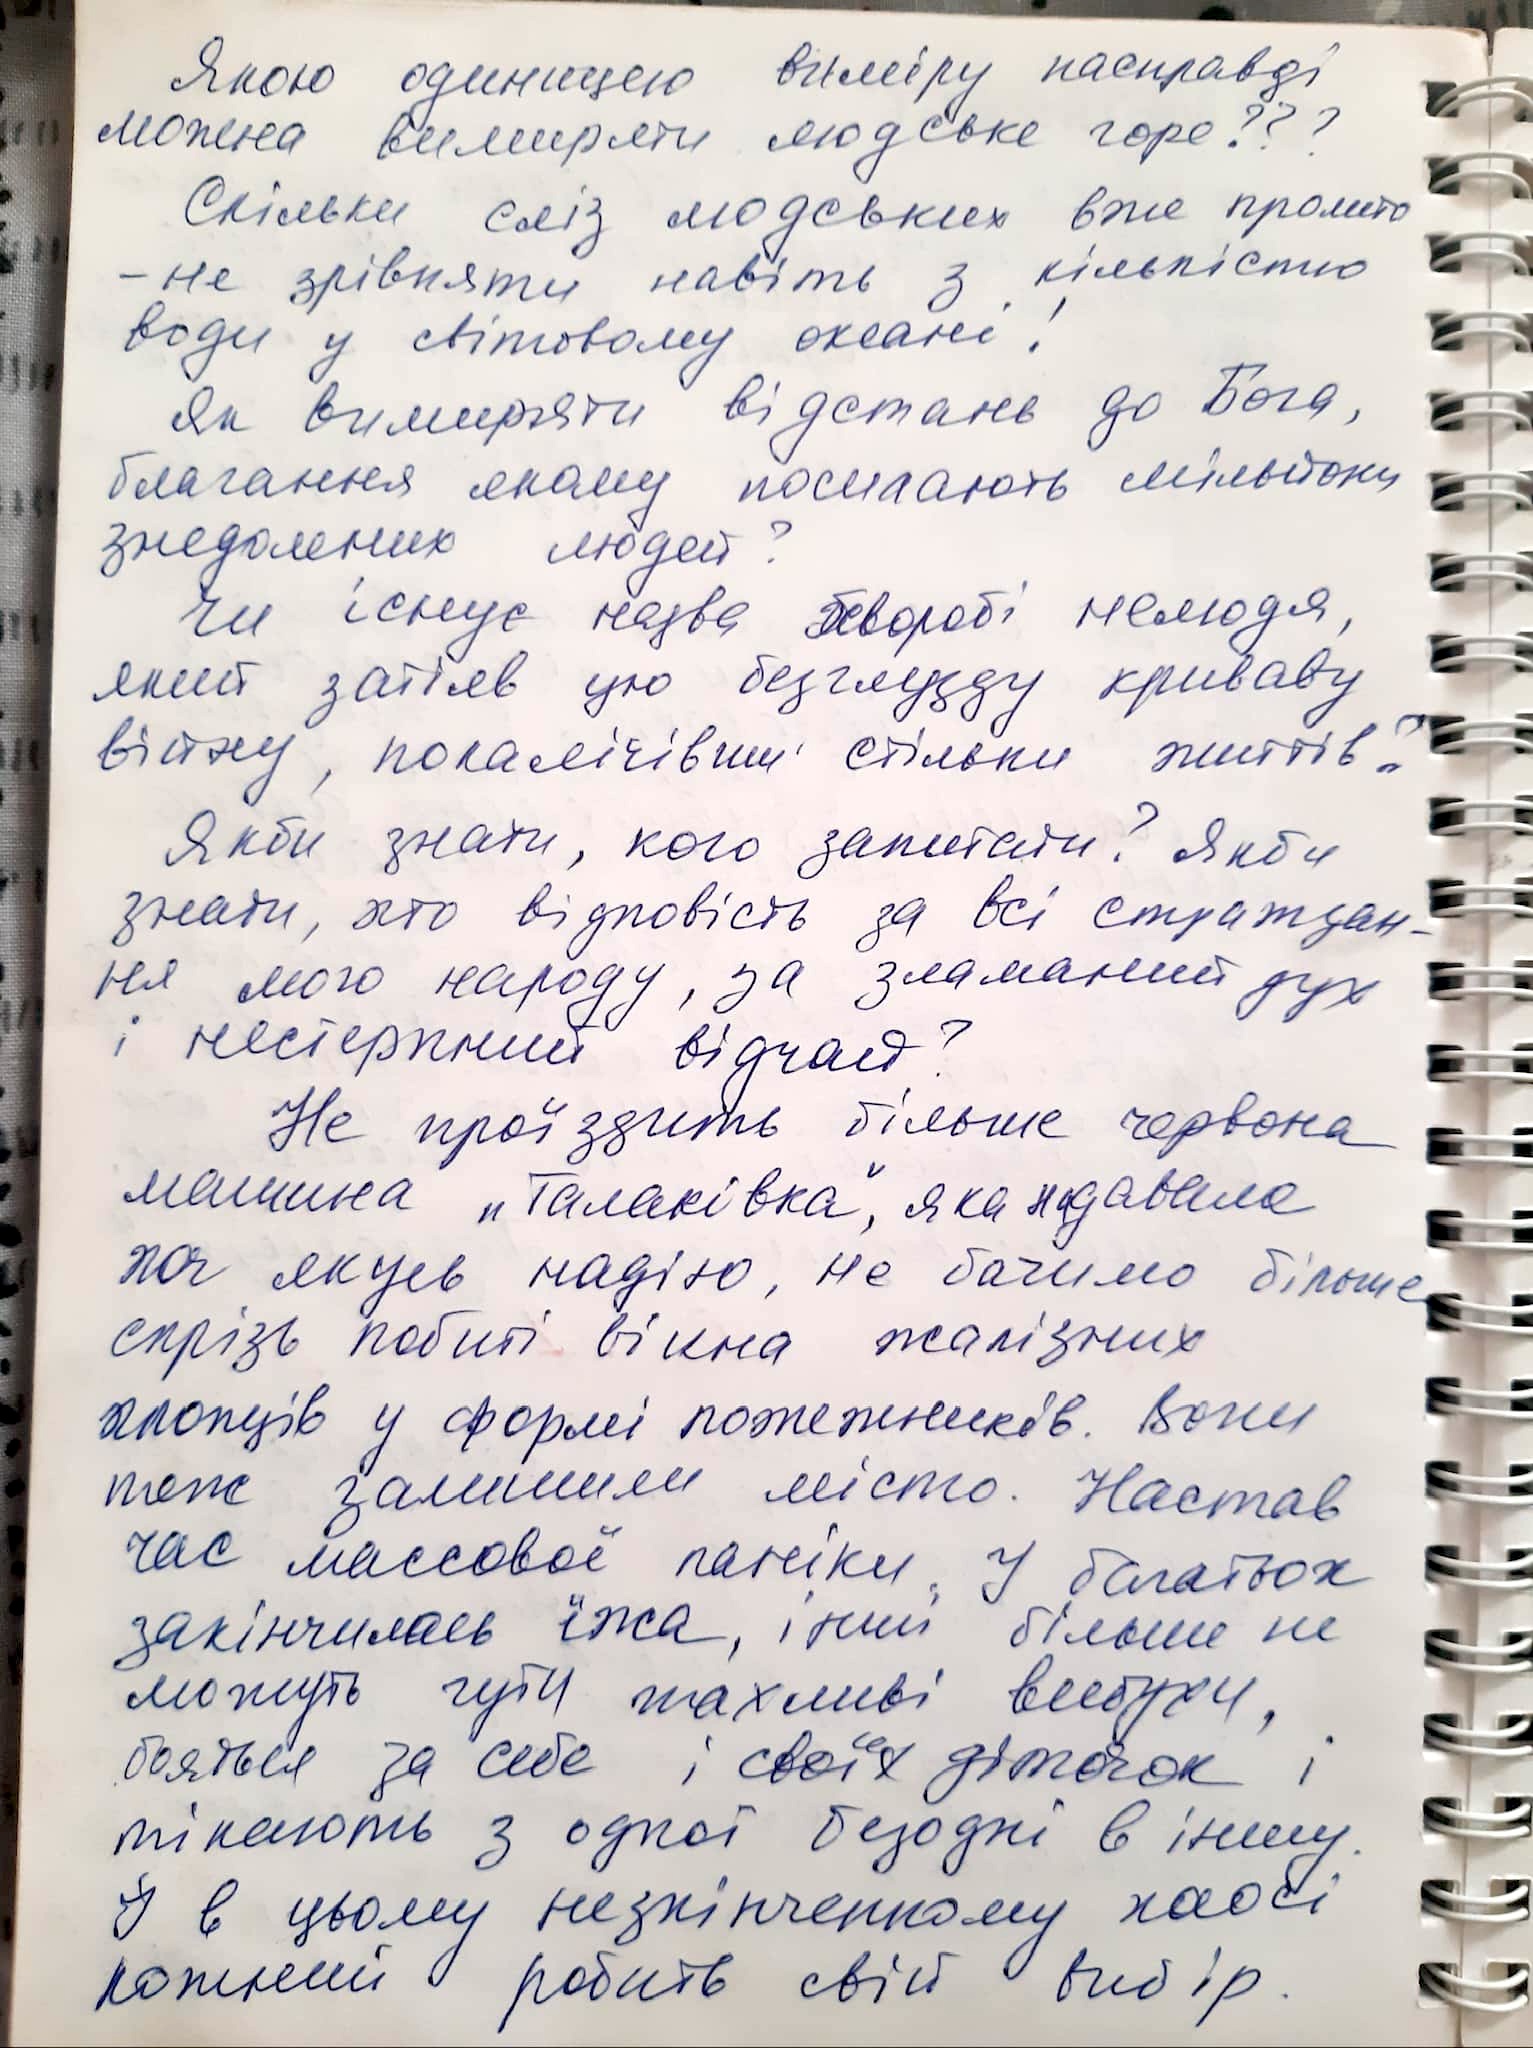 Якою одиницею виміру насправді
можна вимиряти людське горе???
Скільки сліз людських вже пролито
– не зрівняти навіть з кількістю
води у світовому океані!
Як вимиряти відстань до Бога,
благання якому посилають мільйони
знедолених людей?
Чи існує назва хворобі нелюдя,
який затіяв цю безглузду криваву
війну, покалічівши стільки життів?
Якби знати, кого запитати? Якби
знати, хто відповість за всі страждан-
ня мого народу, за зламаний дух
і нестерпний відчай?
Не проїздить більше червона
машина „Талаківка", яка надавала
хоч якусь надію, не бачимо більше
скрізь побиті вікна жалізних
хлопців у формі пожежників. Вони
теж залишили місто. Настав
час массової паніки. У багатьох
закінчилась їжа, інші більше не
можуть чути жахливі вибухи,
бояться за себе і своїх діточок і
тікають з одної безодні в іншу.
Й в цьому незкінченному хаосі
кожний робить свій вибір.